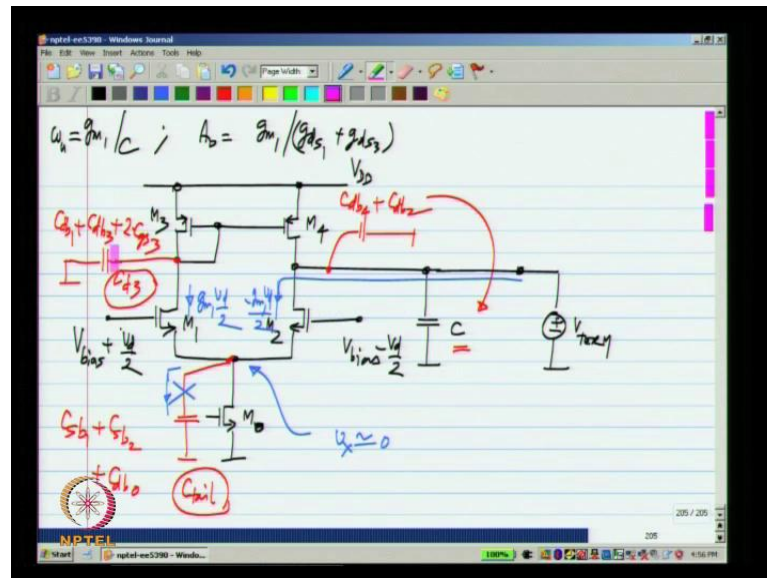 nptel-ee5390 - Windows Journal
File Edit View Insert Actions Tools Help
Page Width
ωu = gm1/C ; A0 = gm1/(gds1 + gds3)
VDD
Cdb1 + Cdb3 + 2·Cgs3
M3
M4
Cdb4 + Cdb2
Cd3
gm1 vd/2
-gm1 vd/2
M1
M2
Vbias + vd/2
Vbias - vd/2
C
M0
vx ≃ 0
Csb1 + Csb2
+ Cdb0
Ctail
NPTEL
205 / 205
205
start
nptel-ee5390 - Windo...
100%
4:56 PM